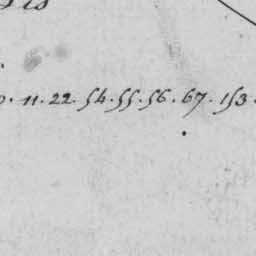 11. 22. 54. 55. 56. 67. 153.